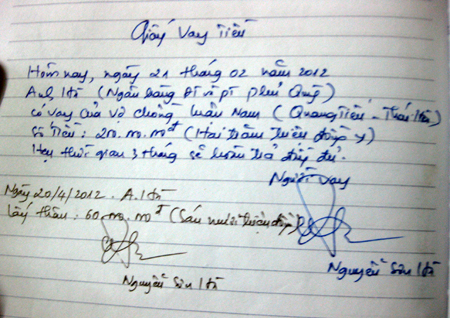 Giấy Vay Tiền
Hôm nay, ngày 21 tháng 02 năm 2012
Anh Hà (Ngân hàng ĐT và PT Phú Quý)
có vay của vợ chồng Luận Nam (Quang Tiến - Thái Hòa)
Số Tiền: 200.000.000đ (Hai trăm triệu đồng
Hẹn thời gian 3 tháng sẽ hoàn trả đầy đủ.
Người vay
Ngày 20/4/2012. A. Hà
lấy thêm: 60.000.000đ (Sáu mươi triệu đồng)
Nguyễn Sơn Hà
Nguyễn Sơn Hà